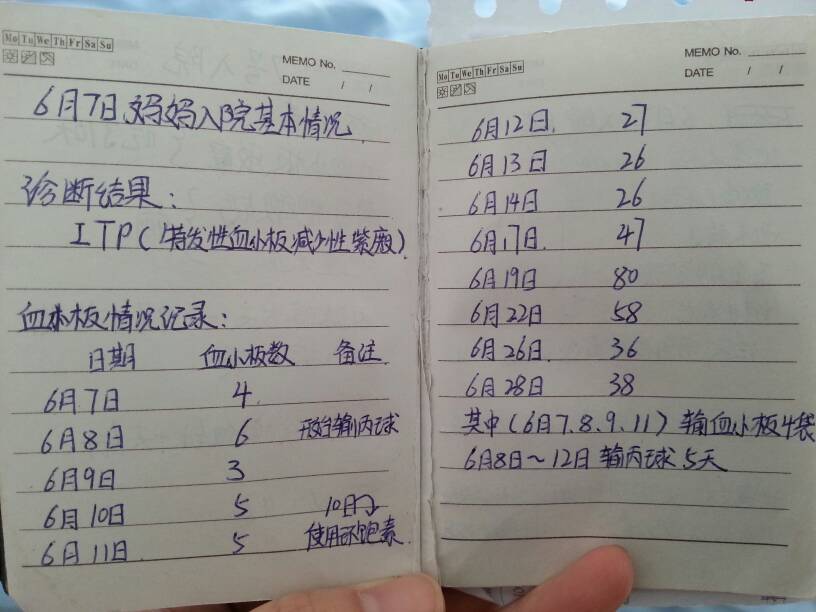 Mo Tu We Th Fr Sa Su
MEMO No.
DATE / /
6月7日,妈妈入院基本情况
诊断结果:
ITP(特发性血小板减少性紫癜)
血小板情况记录:
日期 血小板数 备注
6月7日 4
6月8日 6 开始输丙球
6月9日 3
6月10日 5 10日
6月11日 5 使用环孢素
Mo Tu We Th Fr Sa Su
MEMO No.
DATE / /
6月12日 27
6月13日 26
6月14日 26
6月17日 47
6月19日 80
6月22日 58
6月26日 36
6月28日 38
其中(6月7.8.9.11)输血小板4袋
6月8日~12日输丙球5天